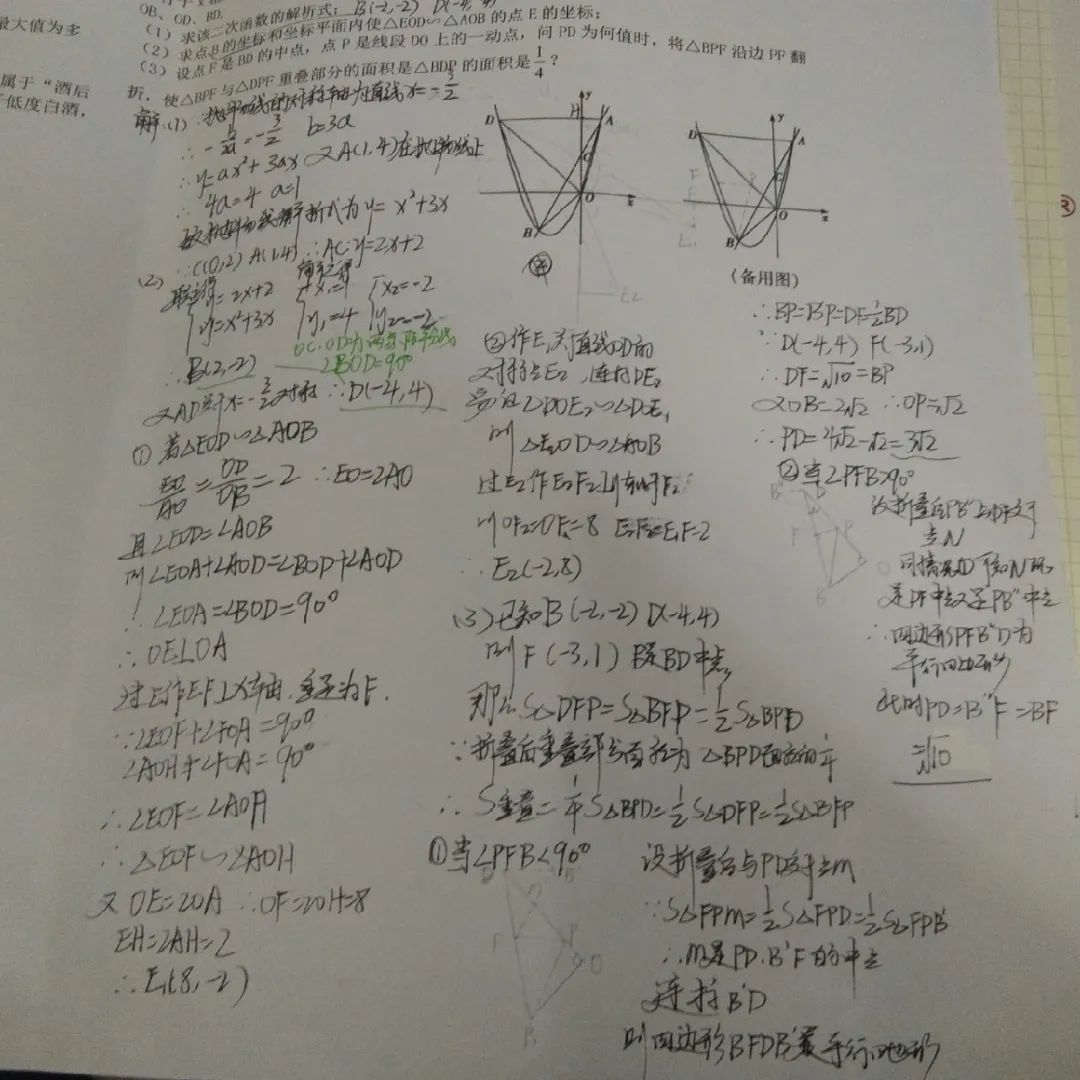 最大值为多
属于“酒后
低度白酒,
OB、OD、BD.
B(-2,-2) D(-4,4)
(1) 求该二次函数的解析式;
(2) 求点B的坐标和坐标平面内使△EOD∽△AOB的点E的坐标;
(3) 设点F是BD的中点,点P是线段DO上的一动点,问PD为何值时,将△BPF沿边PF翻
折,使△BPF与△DPF重叠部分的面积是△BDP的面积是1/4?
解:(1) 抛物线的对称轴为直线x=-3/2
∴-b/2a=-3/2 b=3a
∴y=ax²+3ax 又A(1,4)在抛物线上
∴4a=4 a=1
故抛物线解析式为y=x²+3x
(2) ∵C(0,2) A(1,4) ∴AC:y=2x+2
y=2x+2
y=x²+3x
x₁=1
y₁=4
x₂=-2
y₂=-2
∠BOD=90°
∴B(2,-2)
∴D(-4,4)
① 若△EOD∽△AOB
EO/AO=OD/OB=2 ∴EO=2AO
且∠EOD=∠AOB
则∠EOA+∠AOD=∠BOD+∠AOD
∴∠EOA=∠BOD=90°
∴OE⊥OA
过E作EF⊥X轴,垂足为F.
∵∠EOF+∠FOA=90°
∠AOH+∠FOA=90°
∴∠EOF=∠AOH
∴△EOF∽△AOH
又OE=2OA ∴OF=2OH=8
EH=2AH=2
∴E₁(8,-2)
D
H
y
A
C
O
x
B
E₂
D
y
A
C
F
O
x
B
E₁
(备用图)
②作E₁关于直线OD的
对称点E₂,连接DE₂
则△E₂OD∽△AOB
则OF₂=OF=8 E₂F₂=E₁F=2
∴E₂(-2,8)
(3)已知B(-2,-2) D(-4,4)
则F(-3,1) 是BD中点
那么S△DFP=S△BFP=1/2S△BPD
∵折叠后重叠部分面积为△BPD面积的1/4
∴S重叠=1/4S△BPD=1/2S△DFP=1/2S△BFP
①当∠PFB<90°
设折叠后与PD交于点M
∵S△FPM=1/2S△FPD=1/2S△FPB'
∴M是PD、B'F的中点
连接B'D
则四边形BFDB'是平行四边形
∴BP=B'P=DF=1/2BD
∵D(-4,4) F(-3,1)
∴DF=√10=BP
又OB=2√2 ∴OP=√2
∴PD=4√2-√2=3√2
②当∠PFB>90°
设折叠后PB''与DF交于
点N
是DF中点又是PB''中点
∴四边形PFB''D为
平行四边形
此时PD=B''F=BF
=√10